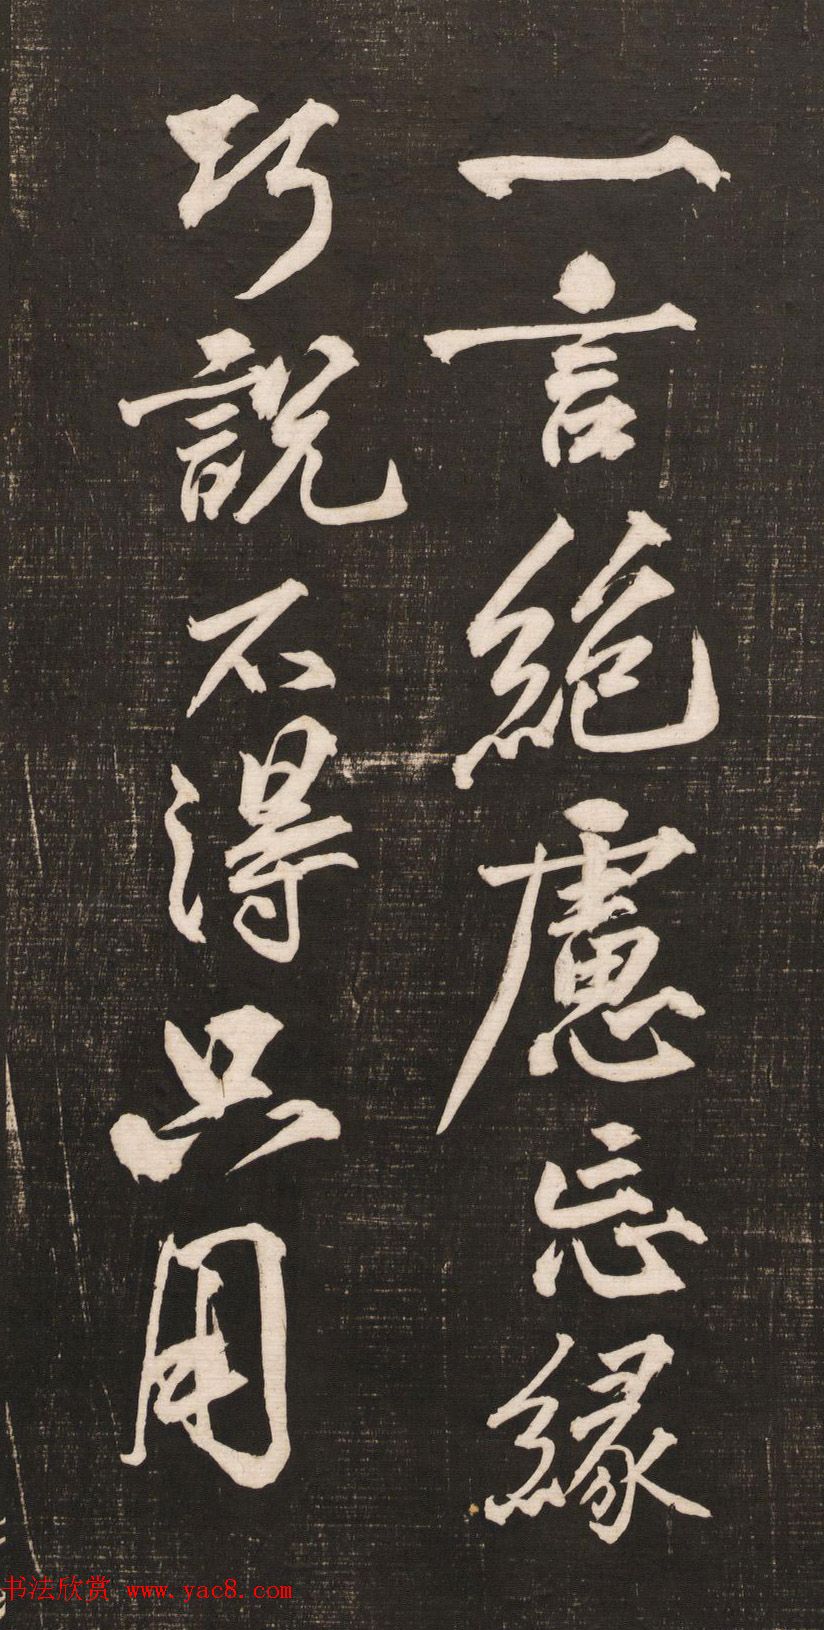 一言絶慮忘緣
巧說不得只用
书法欣赏 www.yac8.com